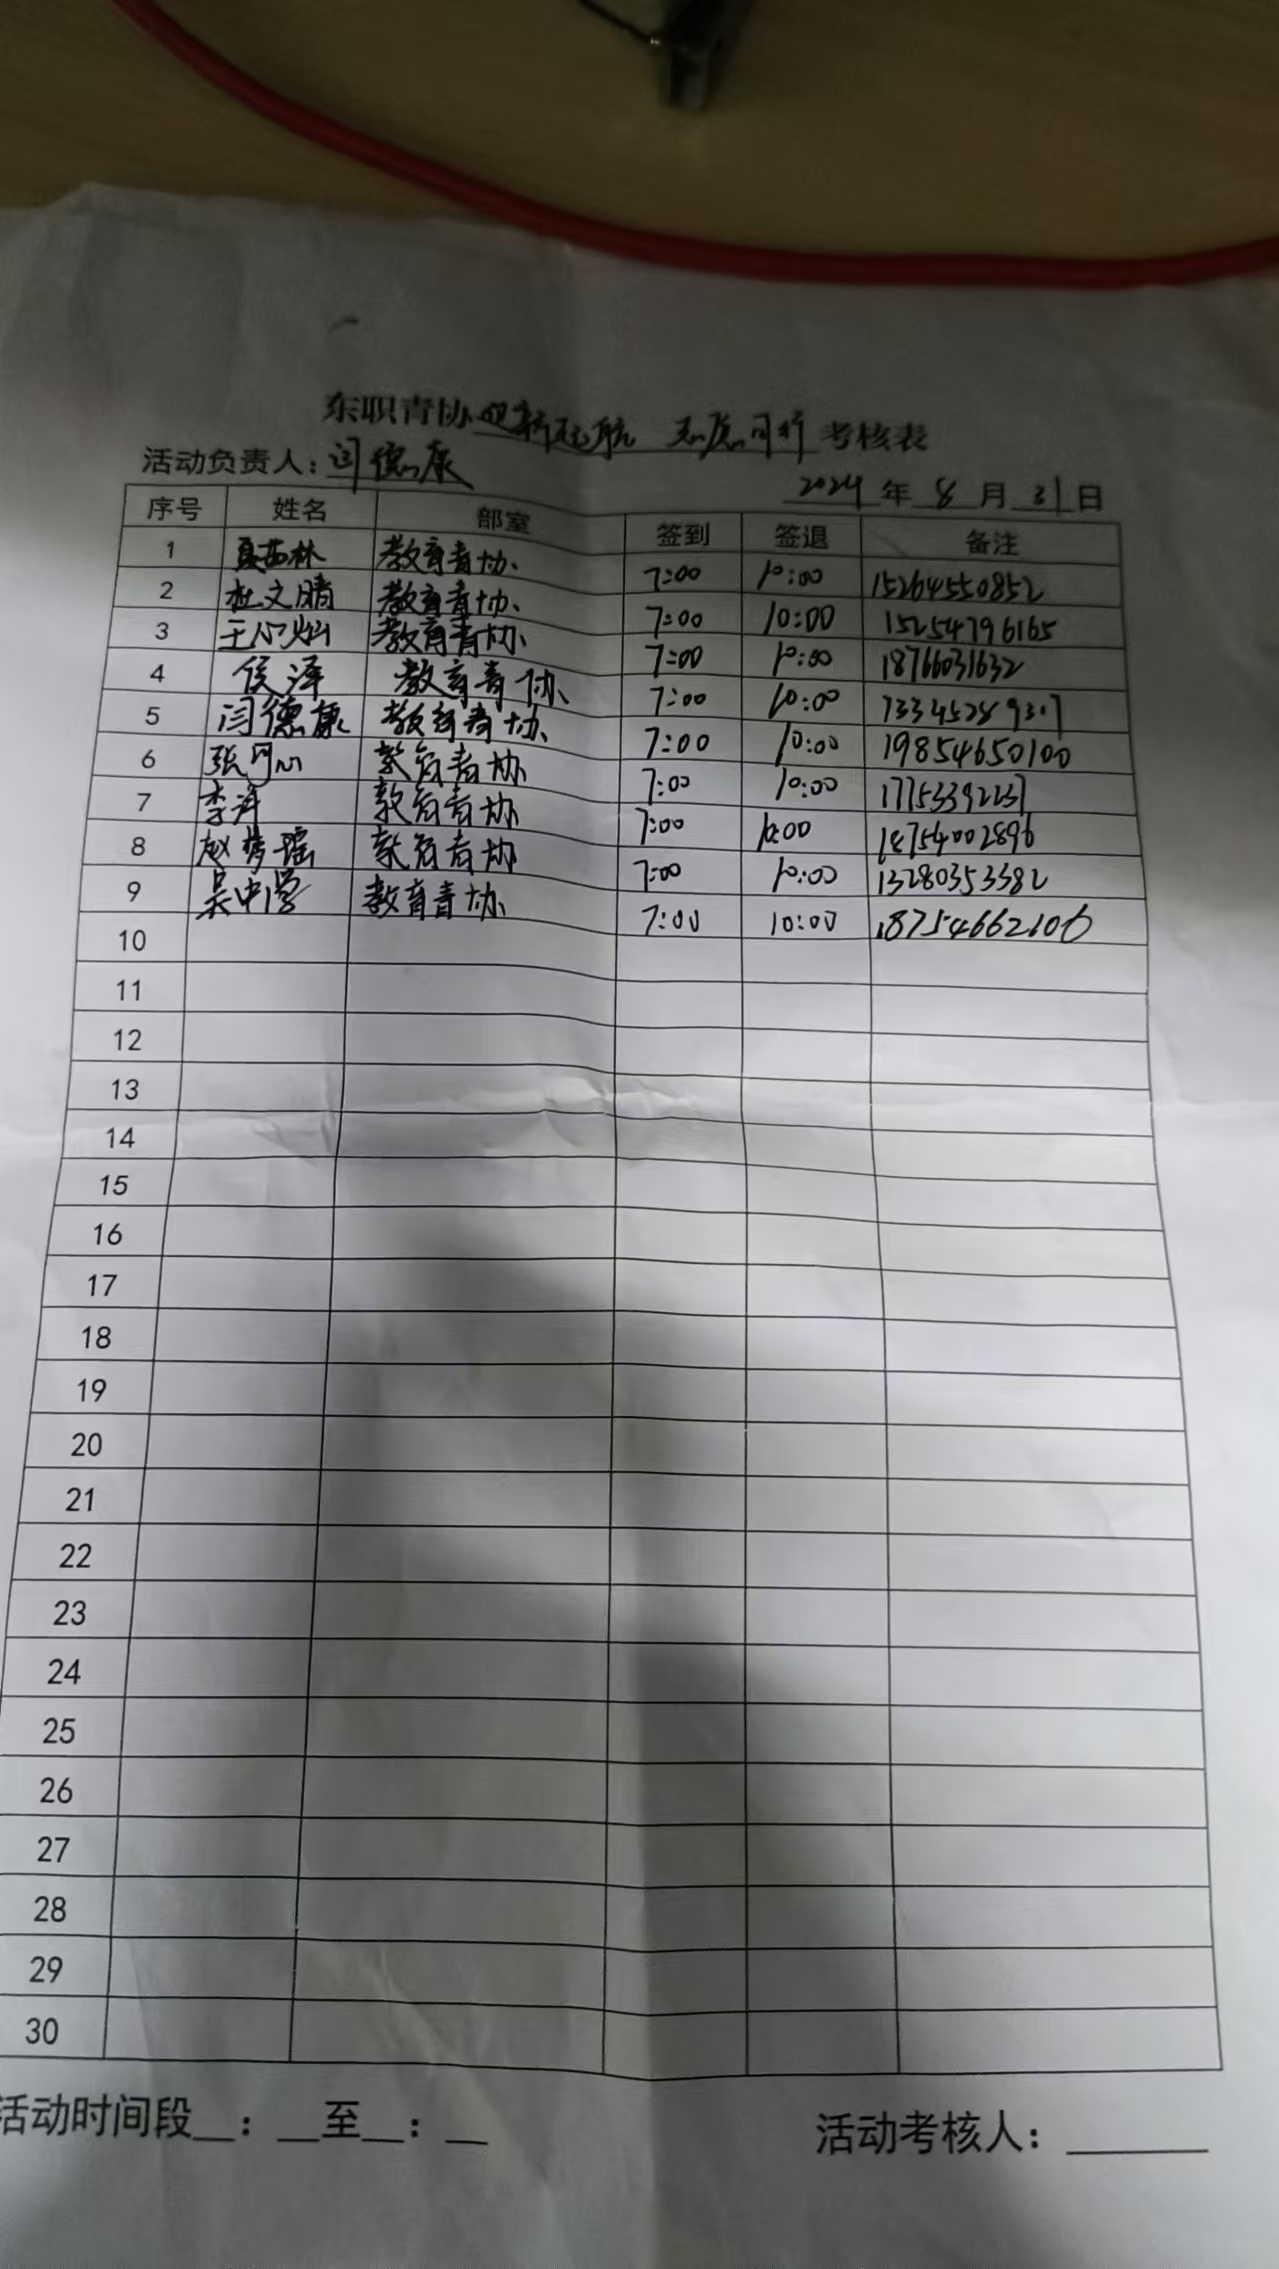 东职青协 迎新起航 志愿同行 考核表
活动负责人：闫德康
2024 年 8 月 31 日
序号 姓名 部室 签到 签退 备注
1 夏茹林 教育青协 7:00 10:00 15264550852
2 杜文晴 教育青协 7:00 10:00 15254796165
3 王心灿 教育青协 7:00 10:00 18766031632
4 侯泽 教育青协 7:00 10:00 
5 闫德康 教育青协 7:00 10:00 19854650100
6 张可心 教育青协 7:00 10:00 17753392237
7 李洋 教育青协 7:00 10:00 18754002896
8 赵梦瑶 教育青协 7:00 10:00 13280353382
9 吴中学 教育青协 7:00 10:00 18754662106
10
11
12
13
14
15
16
17
18
19
20
21
22
23
24
25
26
27
28
29
30
活动时间段__：__至__：__ 活动考核人：______